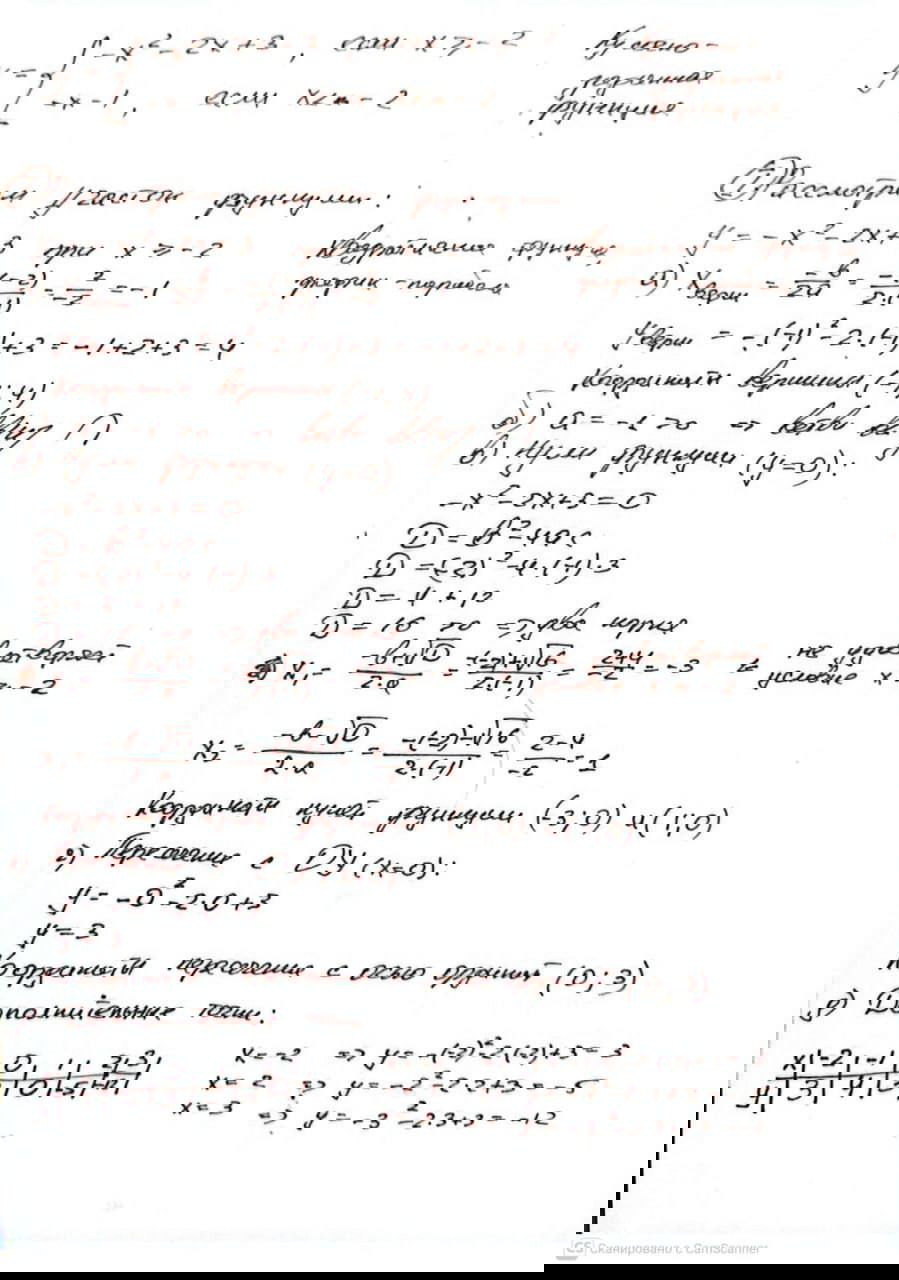 y = { -x² - 2x + 3, если x ≥ -2
-x - 1, если x < -2
Кусочно-
функция
участок функции:
① Рассмотри
3 при x ≥ -2
Квадратичная функция
y = -x² - 2x +
график - парабола
верш = -в/2а =
= 2/-2 = -1
yверш = -(-1)² - 2·(-1)
+3 = -1+2+3 = 4
Координаты вершины (-1
; 4)
=> ветви
Нули функции (y=0):
-x² - 2x + 3 = 0
D = в² - 4ас
D = (-2)² - 4·(-1)·3
D = 4 + 12
D = 16 > 0 => два корня
x₁ = -в+√D/2·а = -(-2)+√16/2·(-1) = 2+4/-2 = -3
не удов
условие x
-2
x₂ = -в-√D/2·а = -(-2)-√16/2·(-1) = 2-4/-2 = 1
Координаты нулей функции (-3;0) и (1;0)
г) Пересечение с OY (x=0):
y = -0² - 2·0 + 3
y = 3
Координаты пересечения с осью ординат (0; 3)
д) Дополнительные точки:
x = -2 => y = -(-2)² - 2·(-2) + 3 = 3
x = 2 => y = -2² - 2·2 + 3 = -5
x = 3 => y = -3² - 2·3 + 3 = -12
x | -2 | -1 |
y | 3 | 4 | 3
0 | 1 | 2 | 3
0 | -5 | -12
CS Сканировано с CamScanner